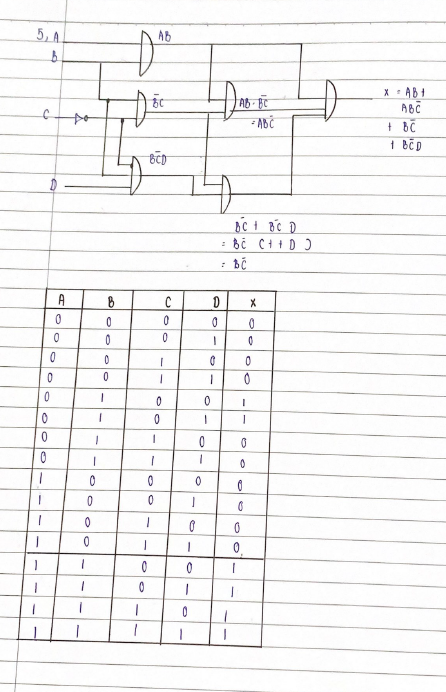 5. A AB
B
B̄C x = AB +
AB · BC̄ ABC̄
C = ABC̄ + BC̄
BC̄D + BC̄D
D
BC̄ + BC̄ D
= BC̄ ( 1 + D )
= BC̄
A B C D X
0 0 0 0 0
0 0 0 1 0
0 0 1 0 0
0 0 1 1 0
0 1 0 0 1
0 1 0 1 1
0 1 1 0 0
0 1 1 1 0
1 0 0 0 0
1 0 0 1 0
1 0 1 0 0
1 0 1 1 0
1 1 0 0 1
1 1 0 1 1
1 1 1 0 1
1 1 1 1 1